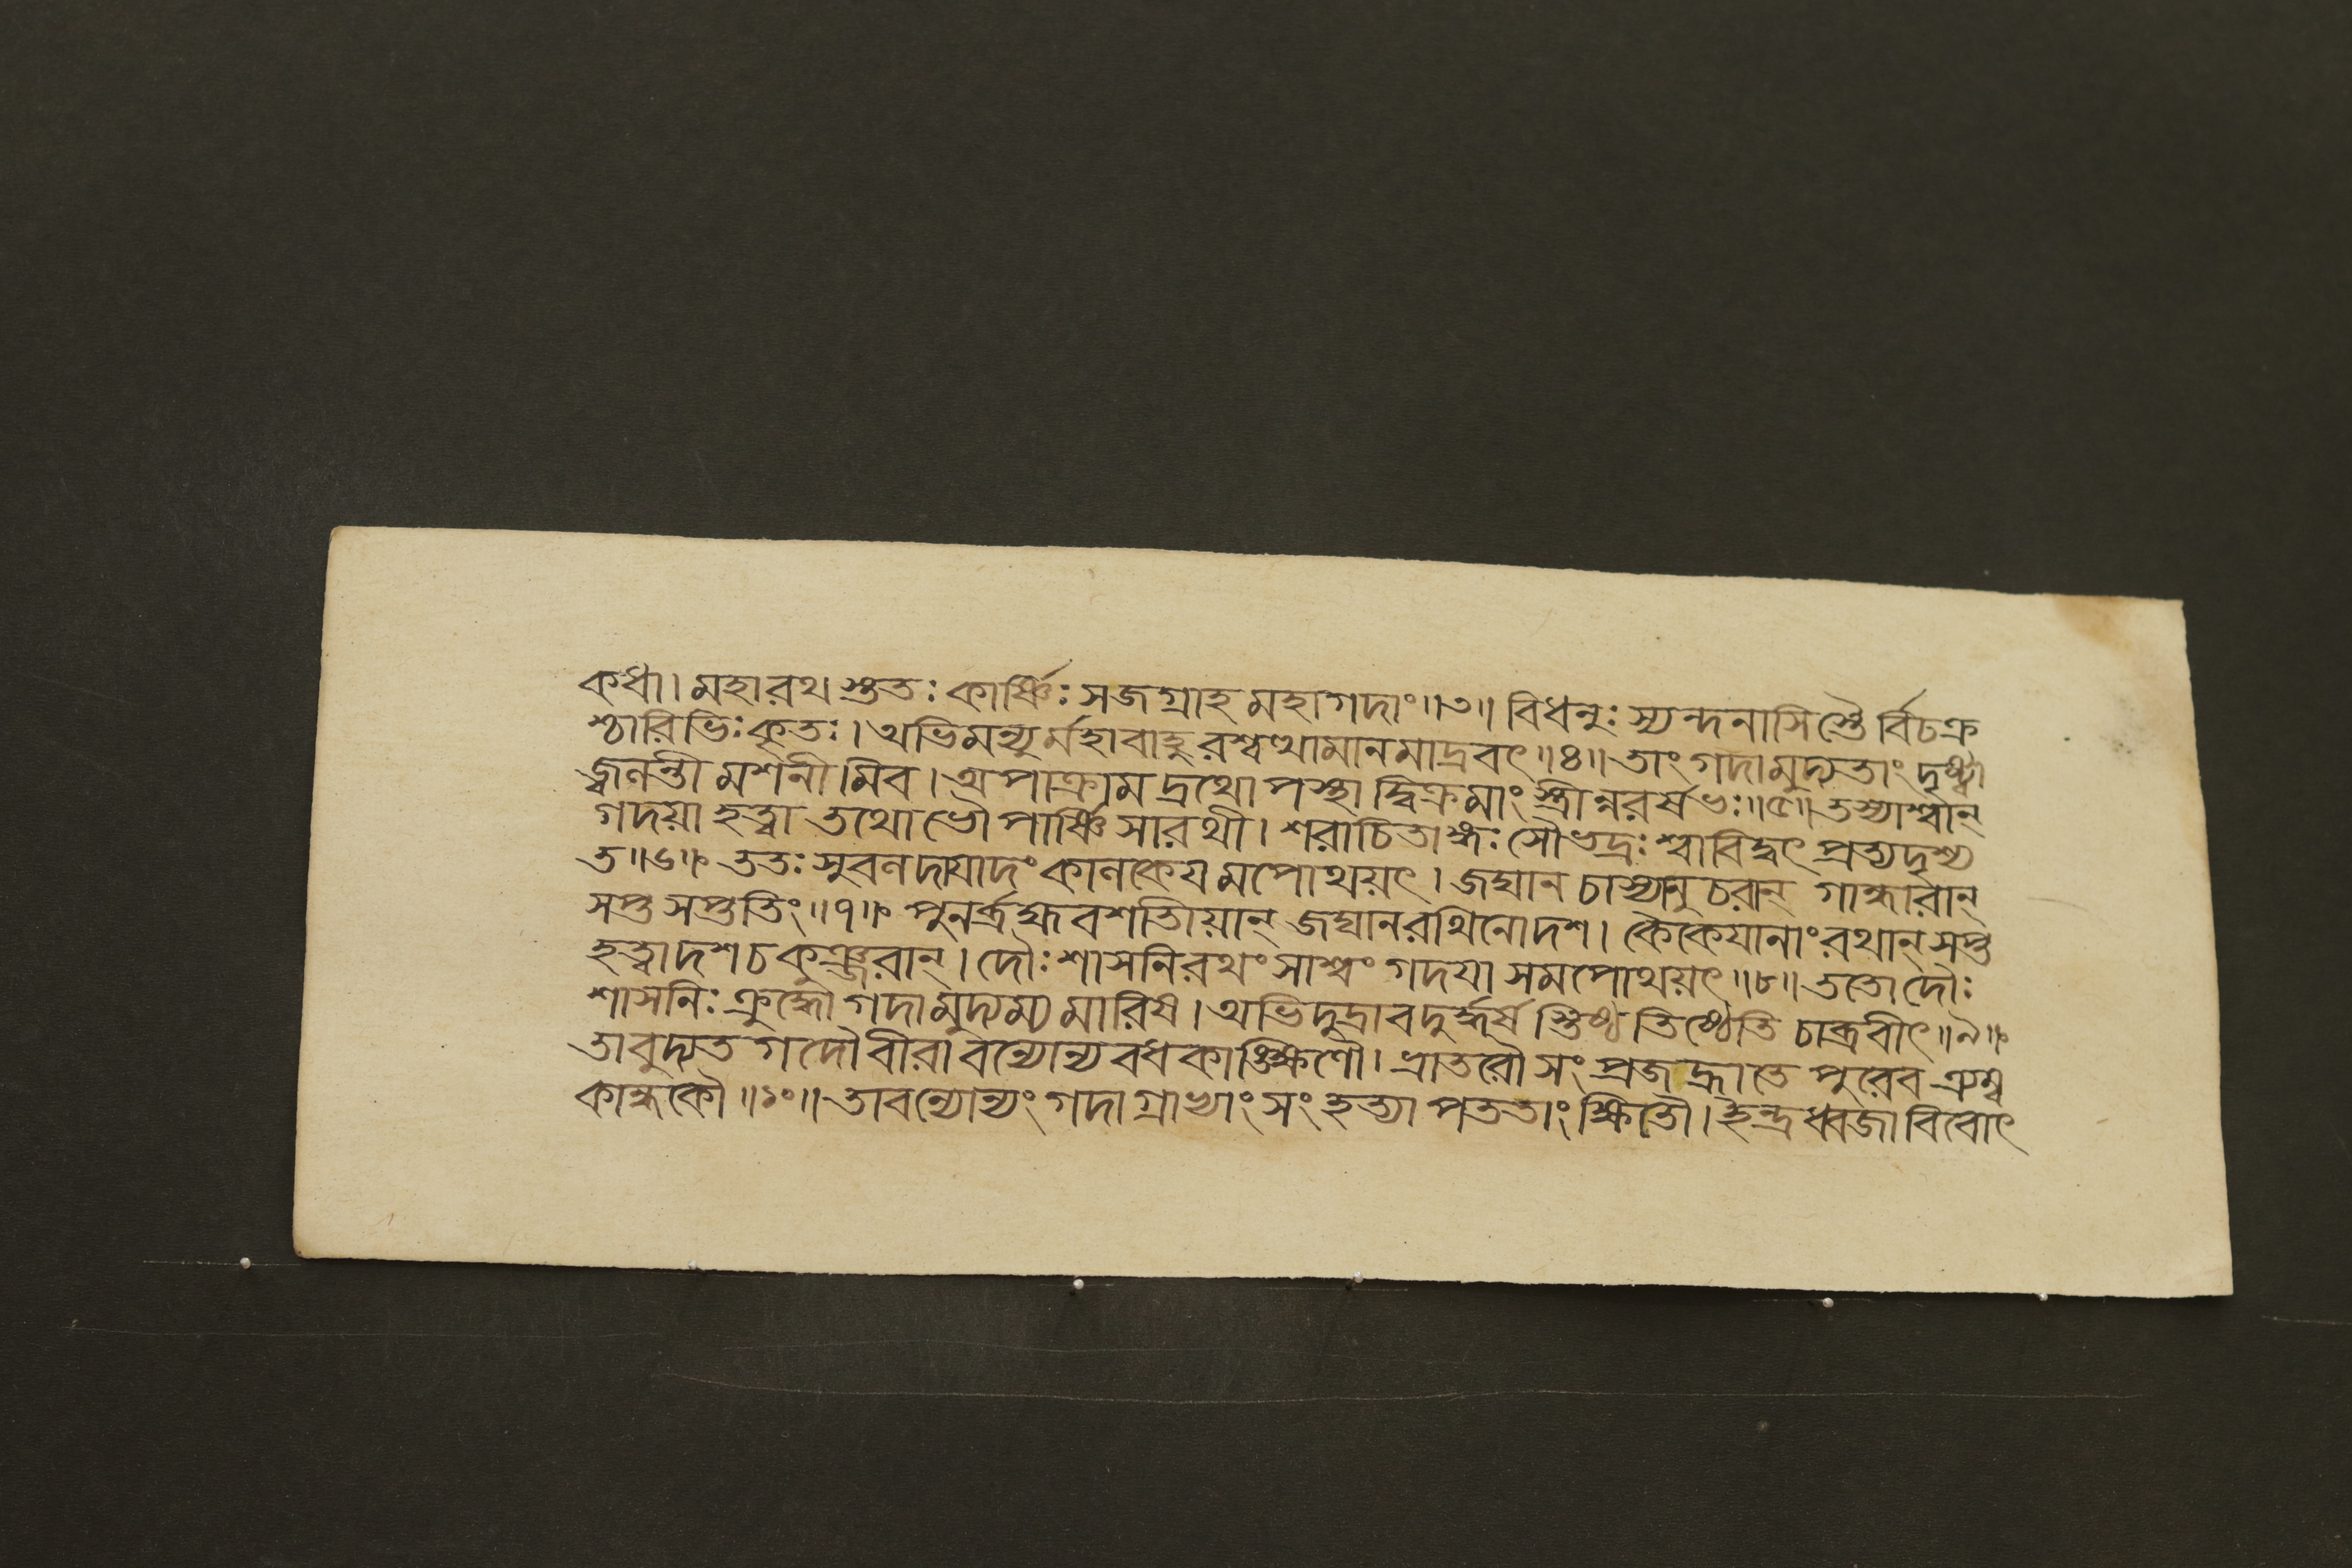 কধা। মহারথ স্তুতঃ কার্ষ্ণিঃ সজগ্রাহ মহাগদাং॥৩॥ বিধনুঃ স্যন্দনাসিস্তৈ র্বিচক্র
শ্চারিভিঃ কৃতঃ। অভিমন্যু র্মহাবাহু রশ্বত্থামানমাদ্রবৎ॥৪॥ তাং গদামুদ্যতাং দৃষ্ট্বা
জ্বলন্তী মশনী মিব। অপাক্রাম দ্রথোপস্থা দ্বিক্রমাং স্ত্রীন্নরর্ষভঃ॥৫॥ তস্যাশ্বান্
গদয়া হত্বা তথোভৌ পার্ষ্ণি সারথী। শরাচিতাঙ্গঃ সৌভদ্রঃ শ্বাবিদ্বৎ প্রত্যদৃশ্য
ত॥৬॥ ততঃ সুবলদায়াদং কালকেয মপোথয়ৎ। জঘান চাস্যানুচরান্ গান্ধারান্
সপ্ত সপ্ততিং॥৭॥ পুনর্ব্রহ্মবশতিায়ান্ জঘান রথিনোদশ। কৈকেযানাং রথান্ সপ্ত
হত্বা দশ চ কুঞ্জরান্। দৌঃশাসনি রথং সাশ্বং গদযা সমপোথয়ৎ॥৮॥ ততো দৌঃ
শাসনিঃ ক্রুদ্ধো গদামুদ্যম্য মারিষ। অভিদুদ্রাব দুর্দ্ধর্ষ স্তিষ্ঠ তিষ্ঠেতি চাব্রবীৎ॥৯॥
তাবুদ্যত গদৌ বীরা বন্যোন্য বধকাঙ্ক্ষিণৌ। ভ্রাতরৌ সংপ্রজহ্রাতে পুরেব ত্র্যম্ব
কান্ধকৌ॥১০॥ তাবন্যোন্যং গদাগ্রাভ্যাং সংহত্যা পততাং ক্ষিতৌ। ইন্দ্রধ্বজা বিবোৎ